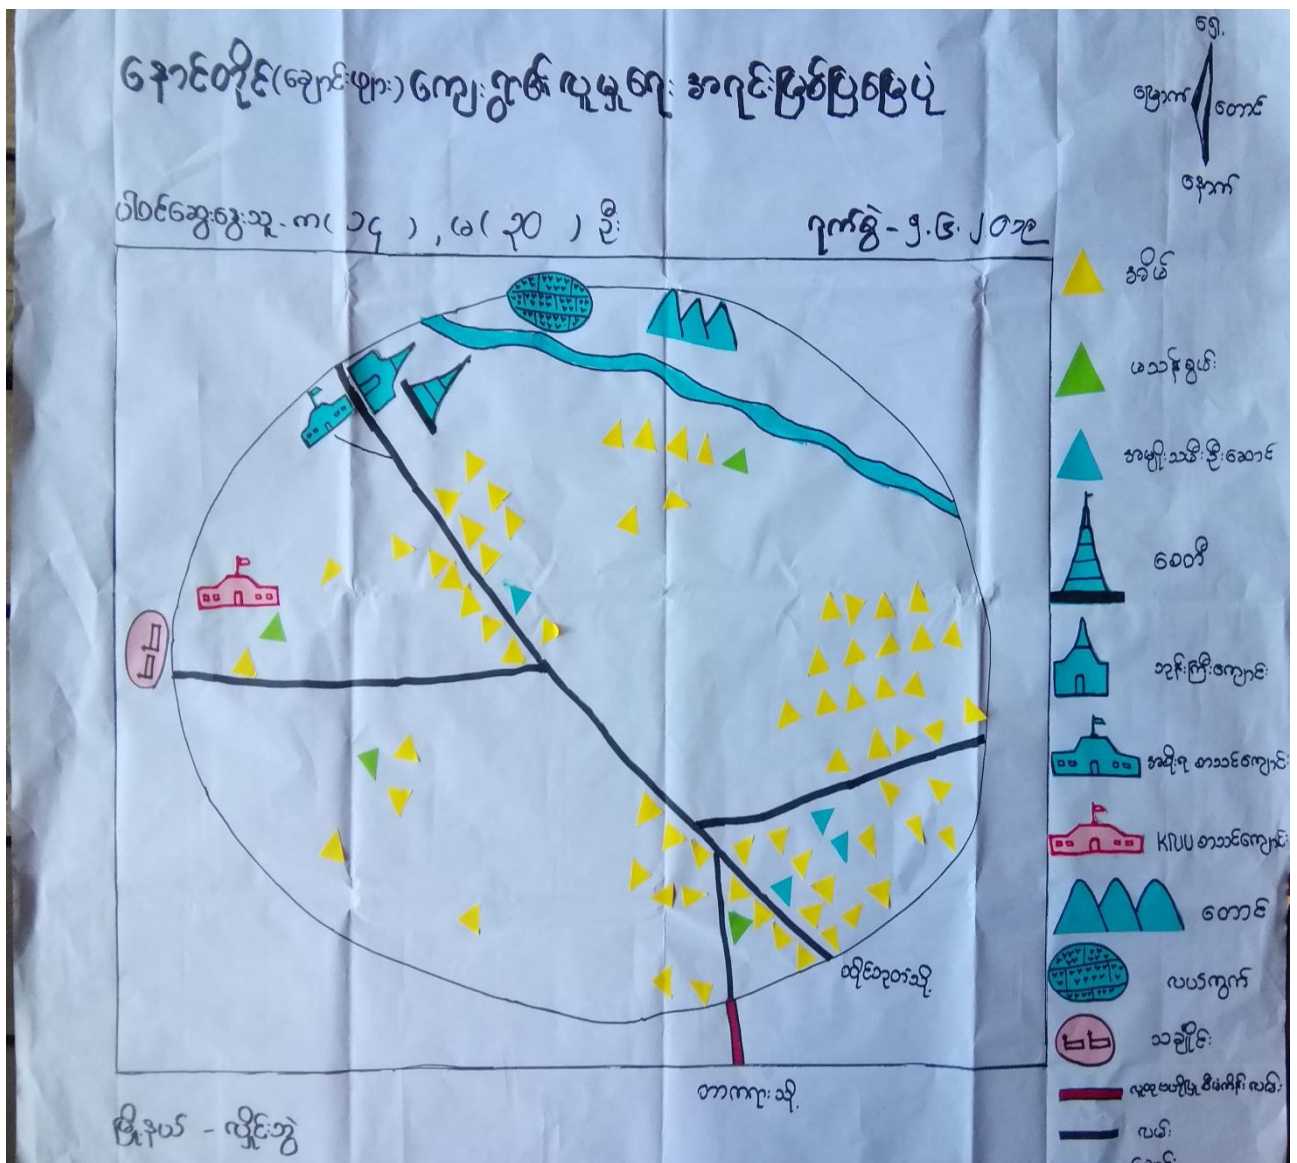 နောင်တိုင်(ချောင်းဖျား)ကျေးရွာ၏ လူမှုရေး အရင်းမြစ်ပြမြေပုံ
ပါဝင်ဆွေးနွေးသူ - ကျ( ၁၄ ) , မ( ၃၀ ) ဦး
ရက်စွဲ - ၅.၆.၂၀၁၉
ရှေ့
မြောက်
တောင်
နောက်
အိမ်
မသန်စွမ်း
အမျိုးသမီးဦးဆောင်
စေတီ
ဘုန်းကြီးကျောင်း
အစိုးရ စာသင်ကျောင်း
KNU စာသင်ကျောင်း
တောင်
လယ်ကွက်
သချိုင်း
လူထုဗဟိုပြုစီမံကိန်းလမ်း
လမ်း
ထိုင်ဘုတ်သို့
တာကရားသို့
မြို့နယ် - လှိုင်းဘွဲ